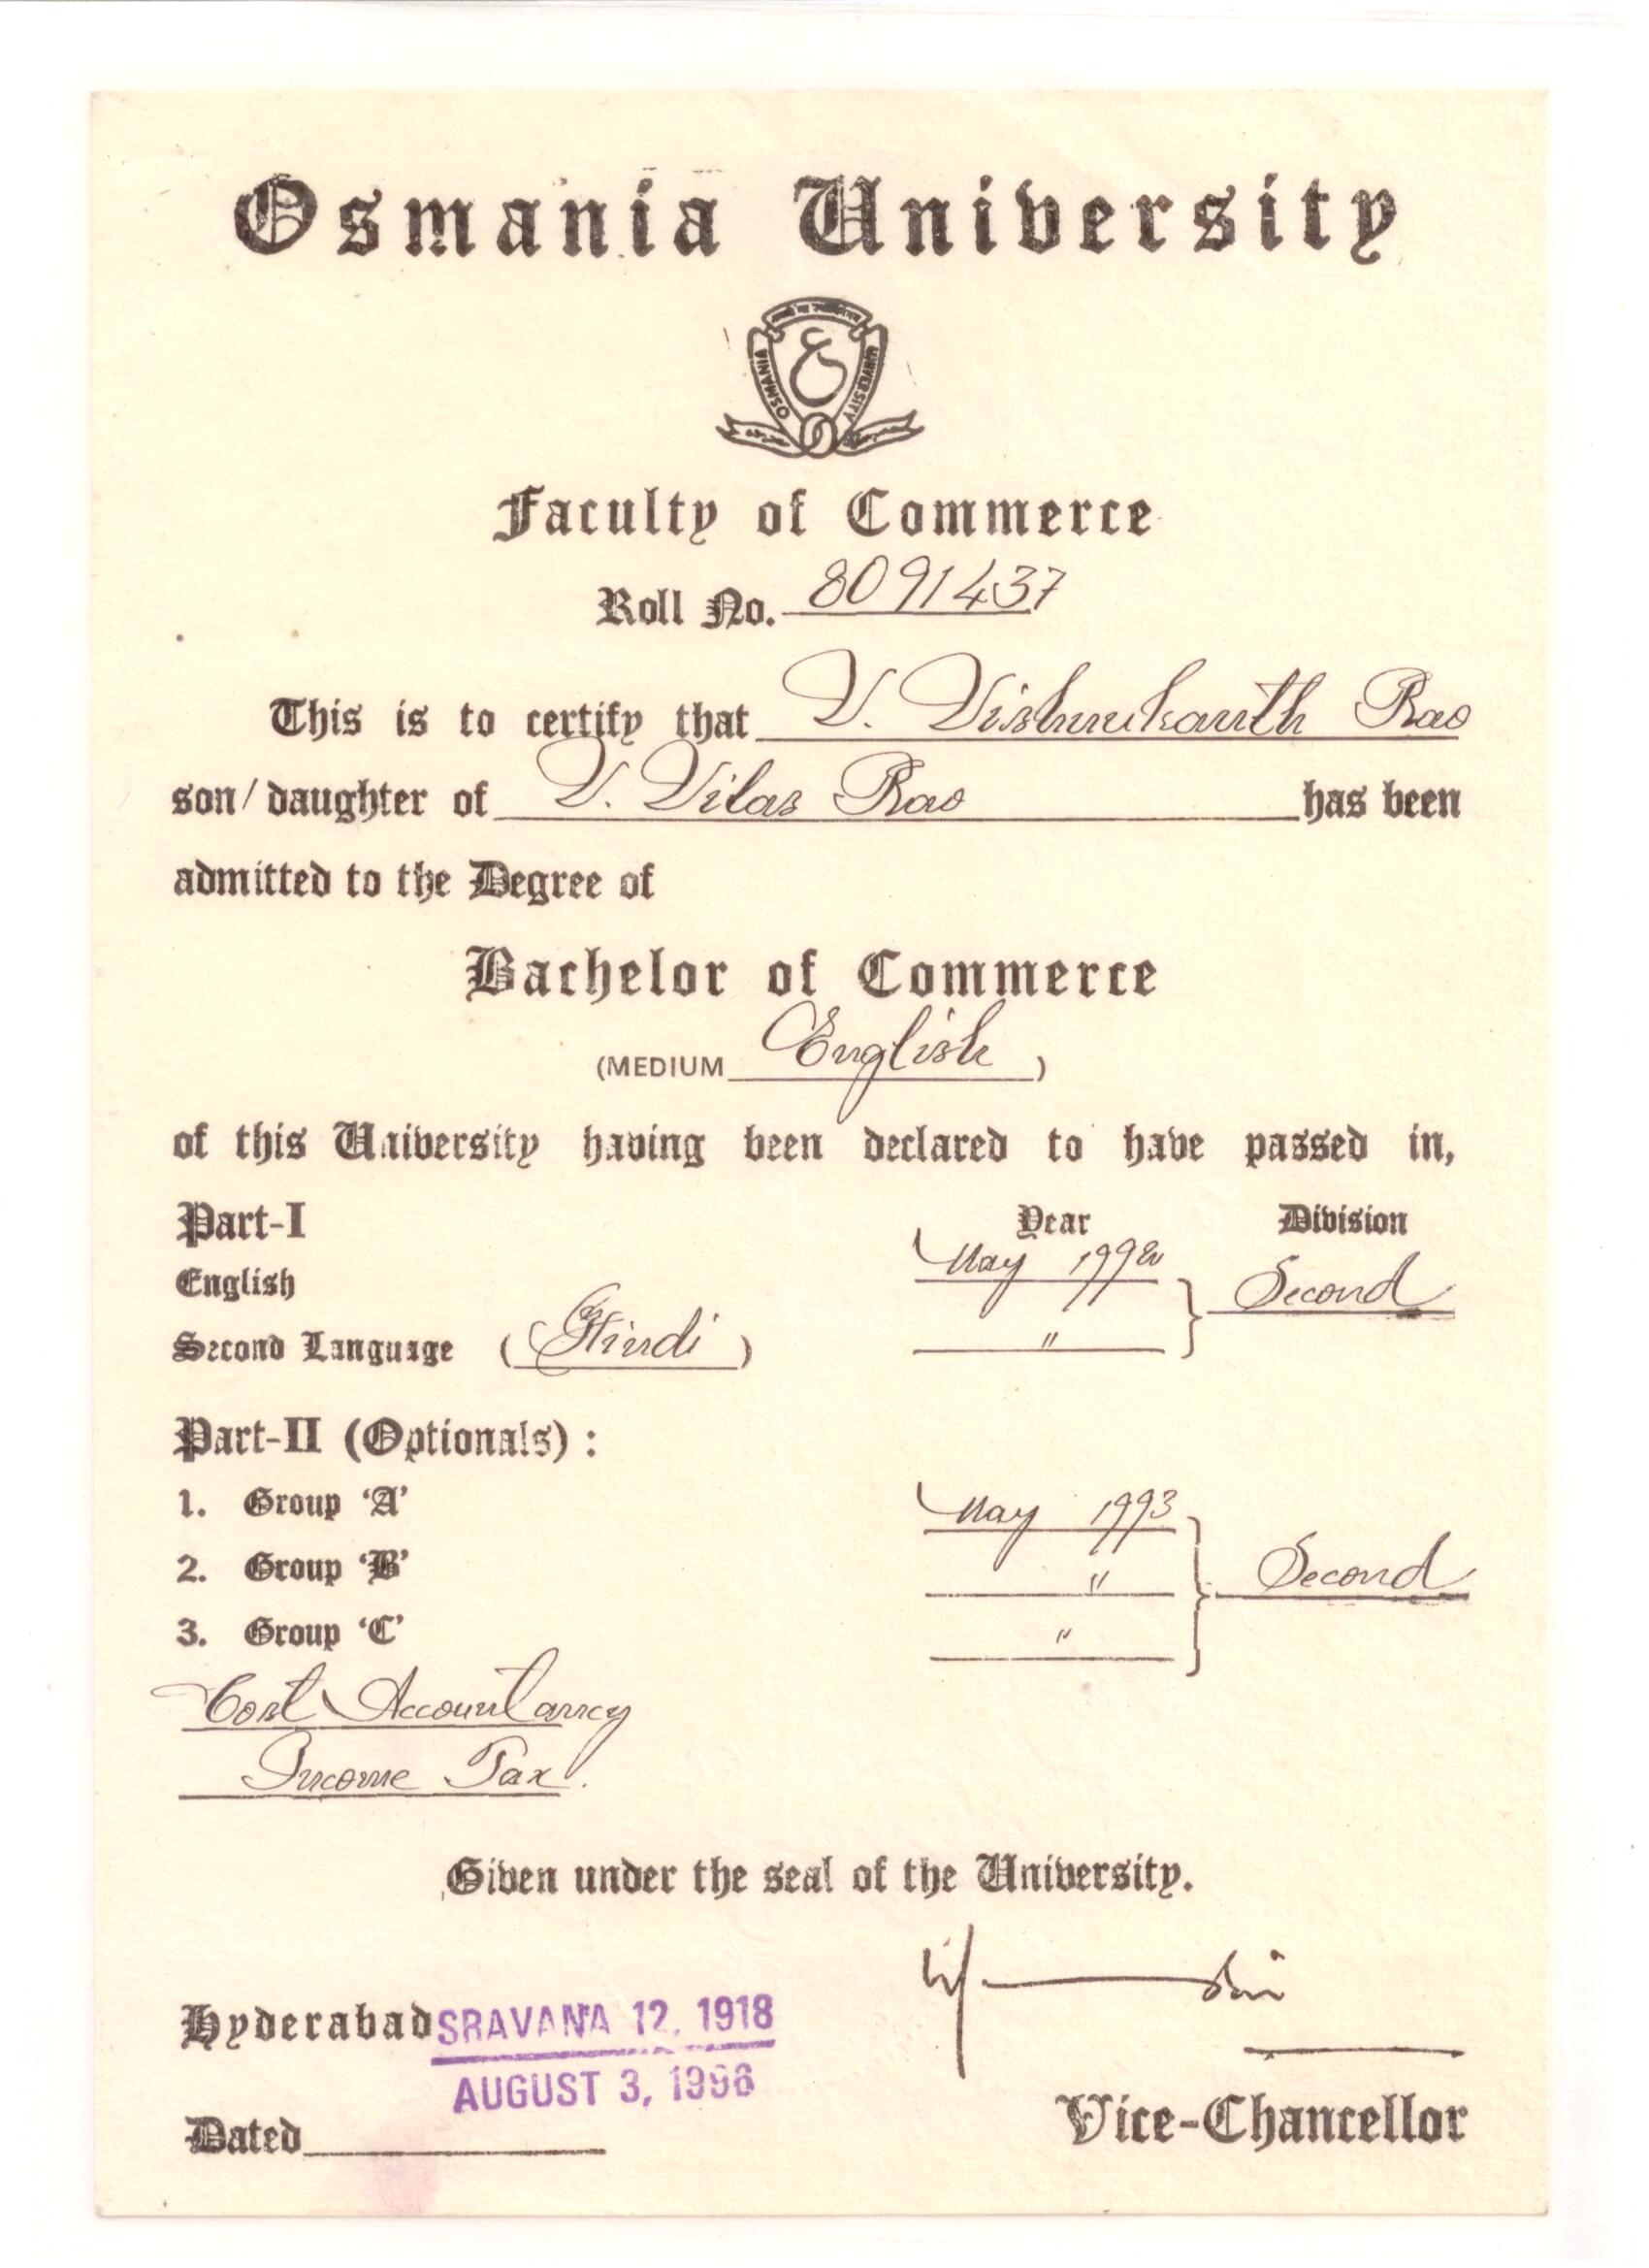 Osmania University
OSMANIA UNIVERSITY
Faculty of Commerce
Roll No. 8091437
This is to certify that V. Vishnukanth Rao
son/daughter of V. Vilas Rao has been
admitted to the Degree of
Bachelor of Commerce
(MEDIUM English )
of this University having been declared to have passed in,
Part-I Year Division
English May 1992 Second
Second Language ( Hindi ) "
Part-II (Optionals) :
1. Group 'A' May 1993
2. Group 'B' " Second
3. Group 'C' "
Cost Accountancy
Income Tax.
Given under the seal of the University.
Hyderabad SRAVANA 12, 1918
AUGUST 3, 1996
Dated
Vice-Chancellor